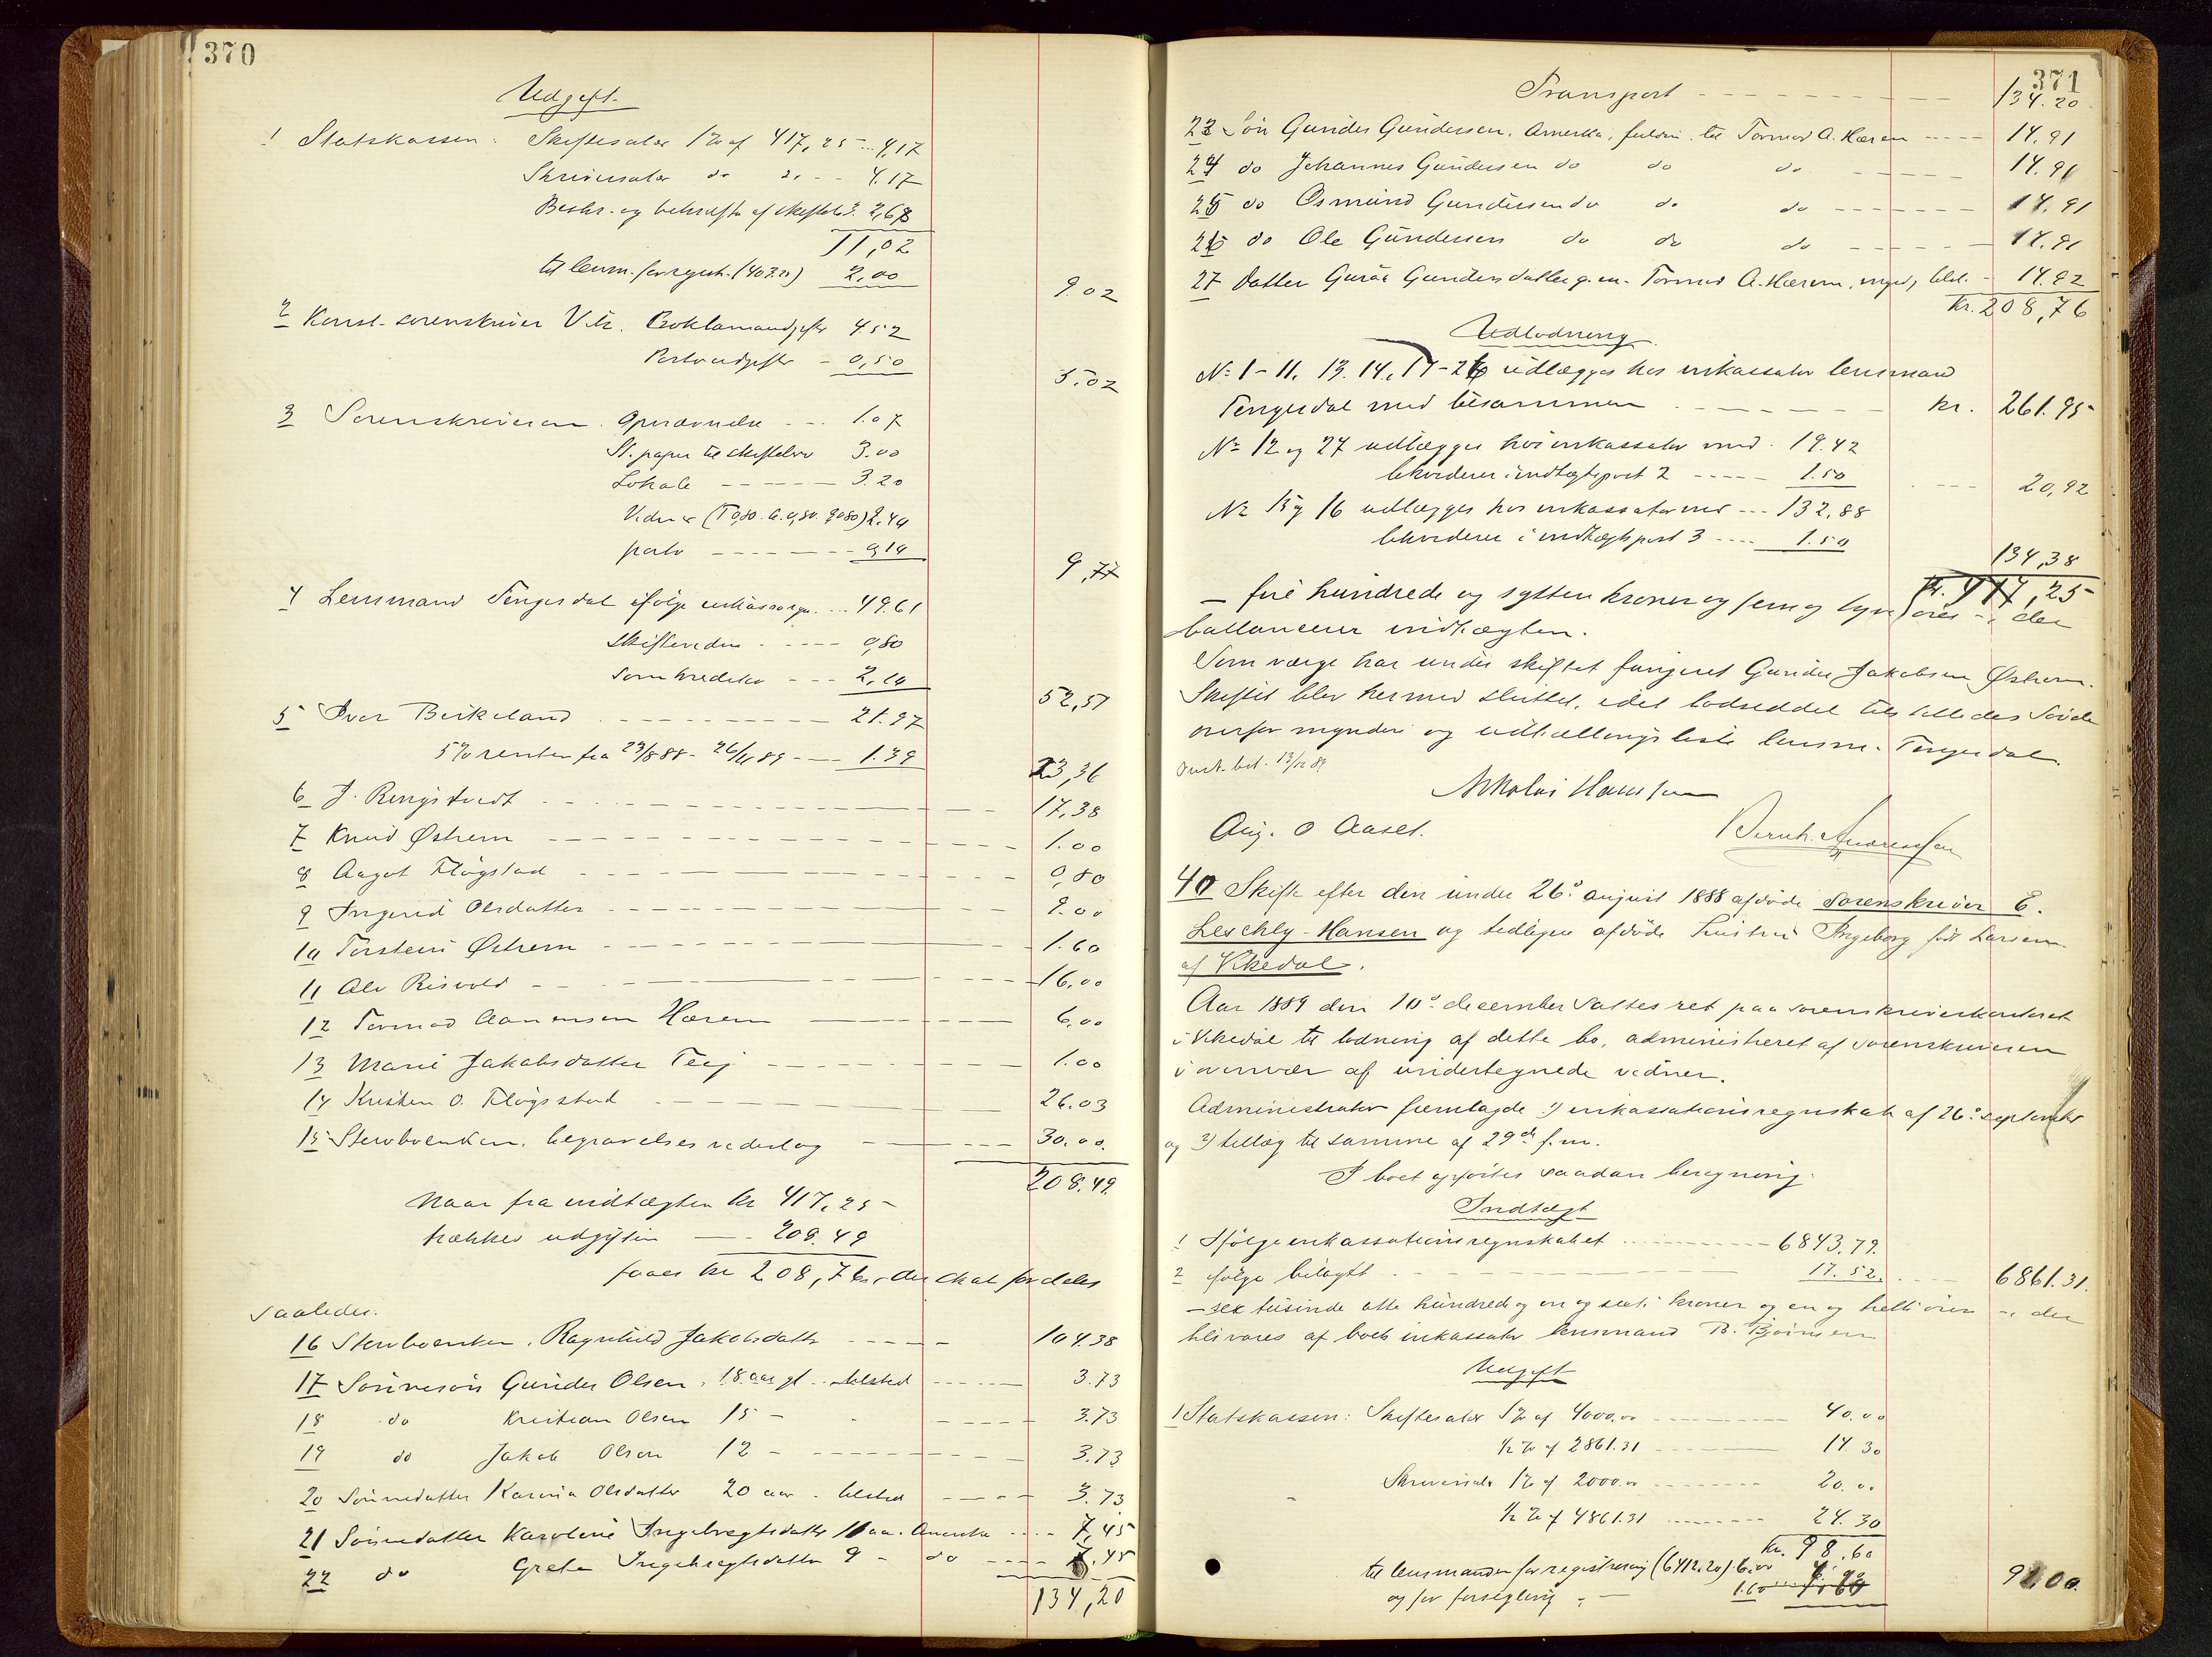 370
Udgift
1 Statskassen: Skiftesalær 1% af 417,25 - 4,17
Skriversalær do " - - 4.17
Beskr. og bekræft. af skiftet 2,68
11,02
til lensm. for registr. (407.20) 2,00
9.02
2 Konst. sorenskriver Proklamaudgifter 4.52
Portoudgifter - 0,50
5.02
3 Sorenskriveren. Opnævnelse - - - 1.07
St. papir til skiftebrev 3.00
Lokale - - - - - 3.20
Vidner 2.40
porto - - - - - - - 0,10
9,77
4 Lensmand Tengesdal ifølge inkassoregn. . . 49.61
Skiftevidne - - - - - 0,80
Som kreditor - - - 2.10
52,51
5 Iver Birkeland - - - - - - - - - - 21.97
5% renter fra 23/8 88 - 26/11 89 - - 1.39
23,36
6 J. Ringstvedt - - - - - 17,38
7 Knud Østrem - - - - - 1.00
8 Aagot Fløgstad - - - - - 0,80
9 Ingerid Olsdatter - - - - - 9.00
10 Torstein Østrem - - - - - 1.60
11 Ole Risvold - - - - - 16,00
12 Tormod Aanensen Hærem - - - - - 6,00
13 Marie Jakobsdatter Teig - - - - - 1.00
14 Kristen O. Fløgstad - - - - - 26.03
15 Stervboenken, begravelsesvederlag - - - - - 30.00.
208.49.
Naar fra indtægten kr 417,25
trækkes udgiften - - 208.49
faaes kr 208,76, der skal fordeles
saaledes.
16 Stervboenken, Ragnhild Jakobsdatter - - - - - 104.38
17 Sønnesøn Gunder Olsen, 18 aar gl. - tilsted - - - - - 3.73
18 do Kristian Olsen 15 - - - - - - 3.73
19 do Jakob Olsen 12 - - - - - - 3.73
20 Sønnedatter Karina Olsdatter 20 aar - tilsted - - - - 3.73
21 Sønnedatter Karoline Ingebregtsdatter 11 aar. Amerika - - - - 7,45
22 do Grete Ingebregtsdatter 9 - do - - - - 7.45
134,20
371
Transport - - - - - - - - - 134.20
23 Søn Gunder Gundersen, Amerika, fuldm. til Tormod A. Hærem - - - - 14.91
24 do Johannes Gundersen do do do - - - - - 14.91
25 do Osmund Gundersen do do do - - - - - 14.91
26 do Ole Gundersen do do do - - - - - 14.91
27 Datter Guroe Gundersdatter g.m. Tormod A. Hærem, myndig, tilst. - 14.92
Kr. 208,76
Udlodning.
No 1 - 11. 13. 14. 17 - 26 udlægges hos inkassator lensmand
Tengesdal med tilsammen - - - - - - kr. 261.95
No 12 og 27 udlægges hos inkassator med - 19.42
likviderer indtægtspost 2 - - - - - 1.50
- - - 20,92
No 15 og 16 udlægges hos inkassator med - - - 132,88
likviderer i indtægtspost 3 - - - - 1.50
134,38
Kr. 417,25
- fire hundrede og sytten kroner og fem og tyve øre - der
ballancerer indtægten.
Som værge har under skiftet fungeret Gunder Jakobsen Østrem.
Skiftet blev hermed sluttet, idet lodseddel tilstilledes
overfor myndi og udtællingsliste lensm. Tengesdal.
13/12 89
Nikolai Hansen
Aug. O Aaset.
Bernh. Andressen
40 Skifte efter den under 26de august 1888 afdøde sorenskriver E.
Leschly-Hansen og tidligere afdøde hustru Ingeborg født Larsen
af Vikedal.
Aar 1889 den 10de december sattes ret paa sorenskriverkontoret
i Vikedal til lodning af dette bo, administreret af sorenskriveren
i overvær af undertegnede vidner.
Administrator fremlagde 1) inkassationsregnskab af 26de september
og 2) tillæg til samme af 29de f.m.
I boet opførtes saadan beregning:
Indtægt
1 Ifølge inkassationsregnskabet - - - - - - 6843.79.
2 ifølge bilagt - - - - - - 17.52. - - - 6861.31.
- sex tusinde otte hundrede og en og sexti kroner og en og tretti øre - der
tilsvares af boets inkassator lensmand B. Bjørnsen
Udgift
1 Statskassen: Skiftesalær 1% af 4000,00 - - - - - - 40.00
1/2 % af 2861.31 - - - - - - 14.30
Skriversalær 1% af 2000.00 - - - - - - 20.00
1/2 % af 4861.31 - - - - - - 24.30
Kr. 98.60
til lensmanden for registrering (6412.20) 6.00
og for forsegling - - 1.60
91.00.